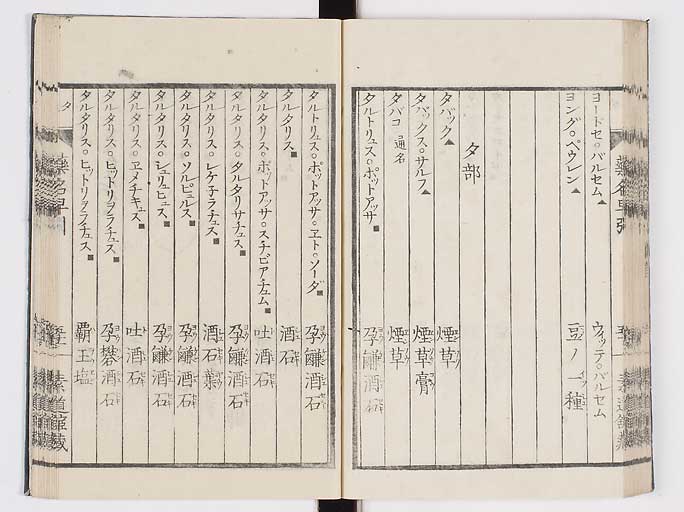 ヨードセ。バルセム▲ ウィッテ。バルセム
ヨング。ペウレン▲ 豆ノ一種
タ部
タバック▲ 煙草
タバックス。サルフ▲ 煙草膏
タバコ 通名 煙草
タルトリュス。ポットアッサ■ 孕鹻酒石
タルトリュス。ポットアッサ。ヱト。ソーダ■ 孕鹻酒石
タルタリス■ 酒石
タルタリス。ポットアッサ。スチビアチュム■ 吐酒石
タルタリス。タルタリサチュス■ 孕鹻酒石
タルタリス。レゲ子ラチュス■ 酒石葉
タルタリス。ソルビュルス■ 孕鹻酒石
タルタリス。シュリュビュス■ 孕鹻酒石
タルタリス。ヱメチキュス■ 吐酒石
タルタリス。ビットリヲラチュス■ 孕礬酒石
タルタリス。ビットリヲラチュス■ 覇王塩
タ
薬名早引
素道館蔵